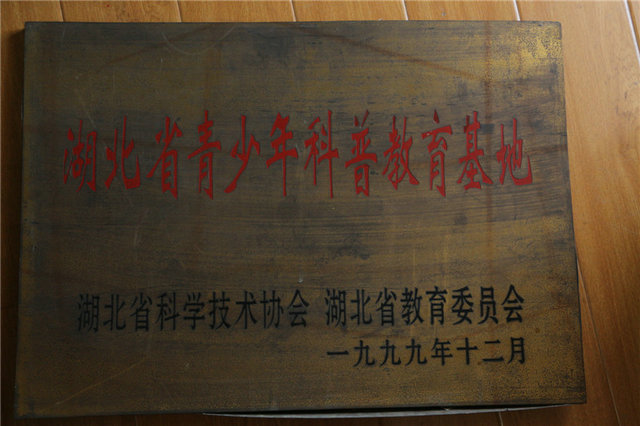 湖北省青少年科普教育基地
湖北省科学技术协会 湖北省教育委员会
一九九九年十二月